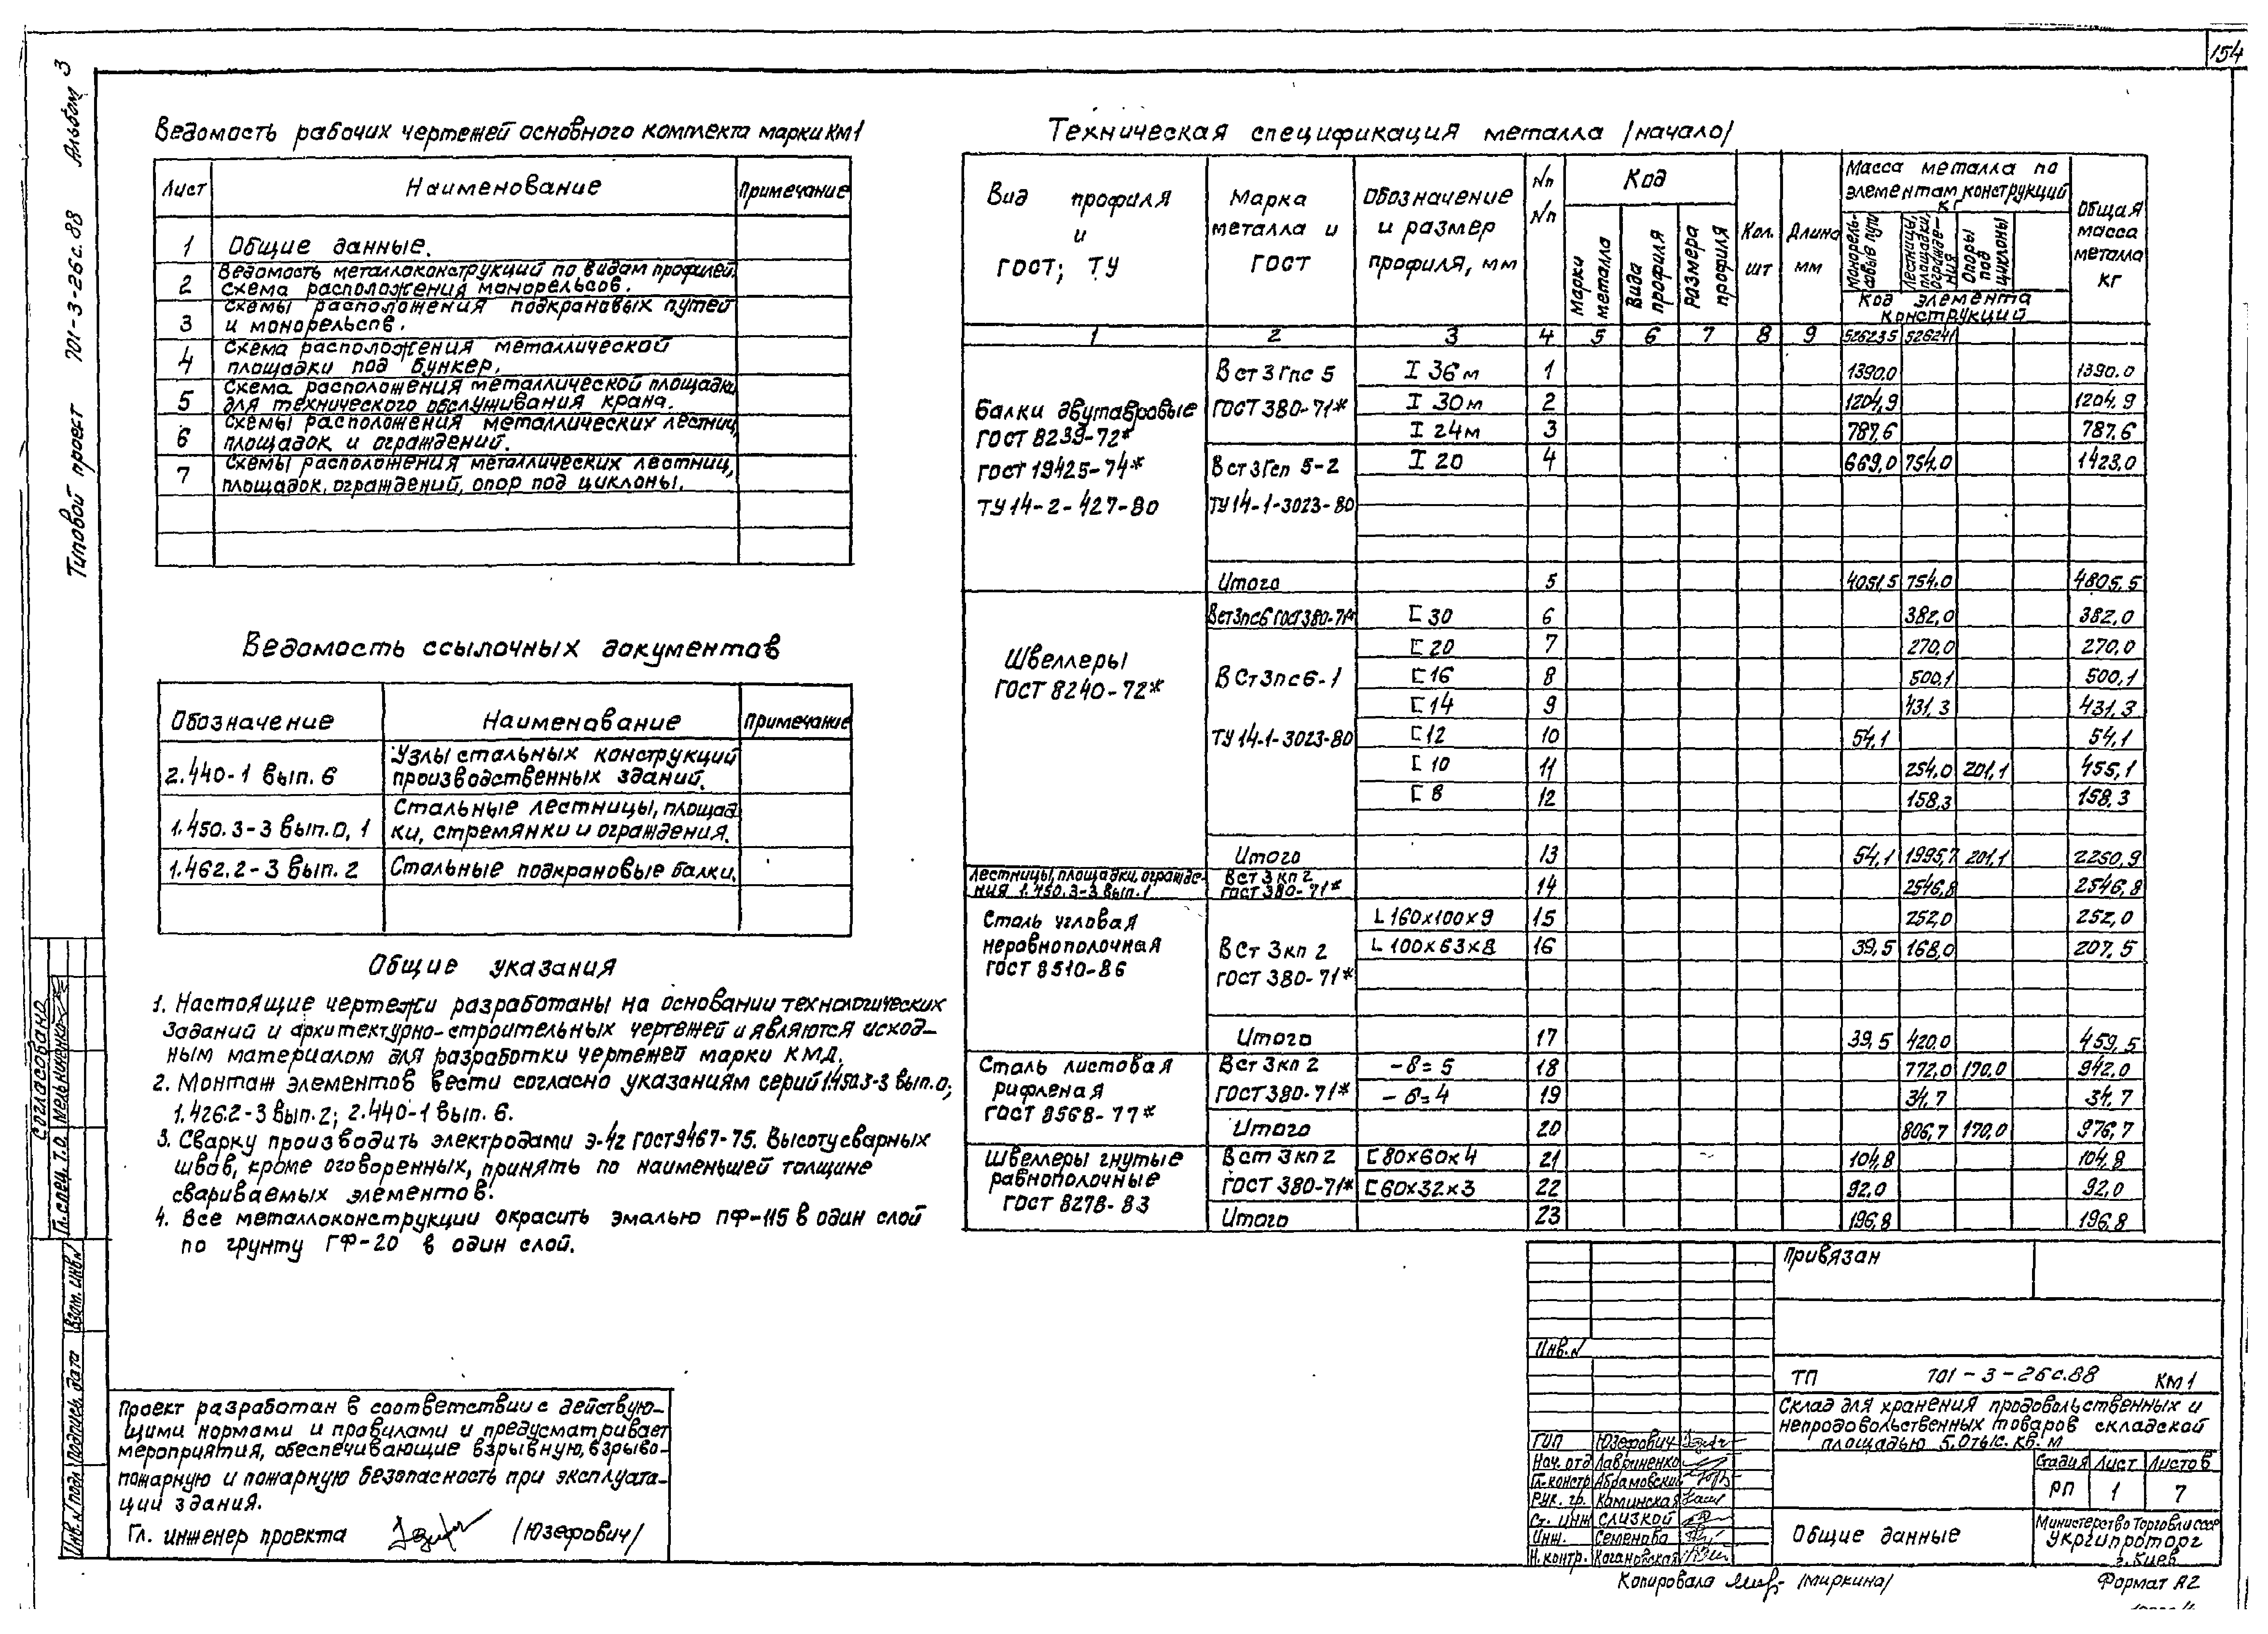 154
Альбом 3
Типовой проект 701-3-26с.88
Ведомость рабочих чертежей основного комплекта марки КМ1
Лист Наименование Примечание
1 Общие данные.
Ведомость металлоконструкций по видам профилей.
2 Схема расположения монорельсов.
Схемы расположения подкрановых путей
3 и монорельсов.
4 Схема расположения металлической
площадки под бункер.
5 Схема расположения металлической площадки
для технического обслуживания крана.
6 Схемы расположения металлических лестниц,
площадок и ограждений.
7 Схемы расположения металлических лестниц,
площадок, ограждений, опор под циклоны.
Ведомость ссылочных документов
Обозначение Наименование Примечание
2.440-1 вып. 6 Узлы стальных конструкций
производственных зданий.
1.450.3-3 вып. 0, 1 Стальные лестницы, площад
ки, стремянки и ограждения.
1.462.2-3 вып. 2 Стальные подкрановые балки.
Общие указания
1. Настоящие чертежи разработаны на основании технологических
заданий и архитектурно-строительных чертежей и являются исход-
ным материалом для разработки чертежей марки КМД.
2. Монтаж элементов вести согласно указаниям серий 1.450.3-3 вып.0;
1.426.2-3 вып. 2; 2.440-1 вып. 6.
3. Сварку производить электродами Э-42 ГОСТ 9467-75. Высоту сварных
швов, кроме оговоренных, принять по наименьшей толщине
свариваемых элементов.
4. Все металлоконструкции окрасить эмалью ПФ-115 в один слой
по грунту ГФ-20 в один слой.
Проект разработан в соответствии с действую-
щими нормами и правилами и предусматривает
мероприятия, обеспечивающие взрывную, взрыво-
пожарную и пожарную безопасность при эксплуата-
ции здания.
Гл. инженер проекта /Юзефович/
Согласовано
Гл. спец. Т.О. Мельниченко
Инв. N подл. Подпись дата Взам. инв. N
Техническая спецификация металла /начало/
Вид профиля и ГОСТ; ТУ
Марка металла и ГОСТ
Обозначение и размер профиля, мм
Nп Nп
Код
Марки металла
Вида профиля
Размера профиля
Кол. шт
Длина мм
Масса металла по элементам конструкций кг
Монорельсовые пути
Лестницы, площадки, ограждения
Опоры под циклоны
Код элемента конструкций
Общая масса металла кг
1 2 3 4 5 6 7 8 9 526235 526241
Балки двутавровые
ГОСТ 8239-72*
ГОСТ 19425-74*
ТУ 14-2-427-80
В ст 3 Гпс 5 I 36м 1 1390.0 1390.0
ГОСТ 380-71* I 30м 2 1204,9 1204,9
I 24м 3 787,6 787,6
В ст 3 Гсп 5-2 I 20 4 669,0 754.0 1423,0
ТУ 14-1-3023-80
Итого 5 4051,5 754.0 4805,5
Швеллеры
ГОСТ 8240-72*
Вст3пс6 ГОСТ380-71* [ 30 6 382,0 382,0
[ 20 7 270,0 270,0
В Ст3пс6-1 [ 16 8 500,1 500,1
[ 14 9 431,3 431,3
ТУ 14-1-3023-80 [ 12 10 54,1 54,1
[ 10 11 254.0 201,1 455,1
[ 8 12 158,3 158,3
Итого 13 54,1 1995,7 201,1 2250,9
Лестницы, площадки, огражде-
ния 1.450.3-3 вып. 1
В Ст 3 кп 2
ГОСТ 380-71* 14 2546,8 2546,8
Сталь угловая
неравнополочная
ГОСТ 8510-86
L 160х100х9 15 252,0 252,0
В Ст 3кп 2 L 100х63х8 16 39,5 168,0 207,5
ГОСТ 380-71*
Итого 17 39,5 420,0 459,5
Сталь листовая
рифленая
ГОСТ 8568-77*
В ст 3 кп 2 -δ=5 18 772,0 170,0 942,0
ГОСТ 380-71* -δ=4 19 34,7 34,7
Итого 20 806,7 170,0 976,7
Швеллеры гнутые
равнополочные
ГОСТ 8278-83
В ст 3 кп 2 [ 80х60х4 21 104,8 104,8
ГОСТ 380-71* [ 60х32х3 22 92,0 92,0
Итого 23 196,8 196,8
Привязан
Инв. N
ТП 701-3-26с.88 КМ1
Склад для хранения продовольственных и
непродовольственных товаров складской
площадью 5,0 тыс. кв. м
ГИП Юзефович
Нач. отд Лавриненко
Гл. констр Абрамовский
Рук. гр. Каминская
Ст. инж Слизкой
Инж. Семенова
Н. контр. Кагановская
Стадия Лист Листов
РП 1 7
Общие данные
Министерство Торговли СССР
Укргипроторг
г. Киев
Копировала /Миркина/
Формат А2